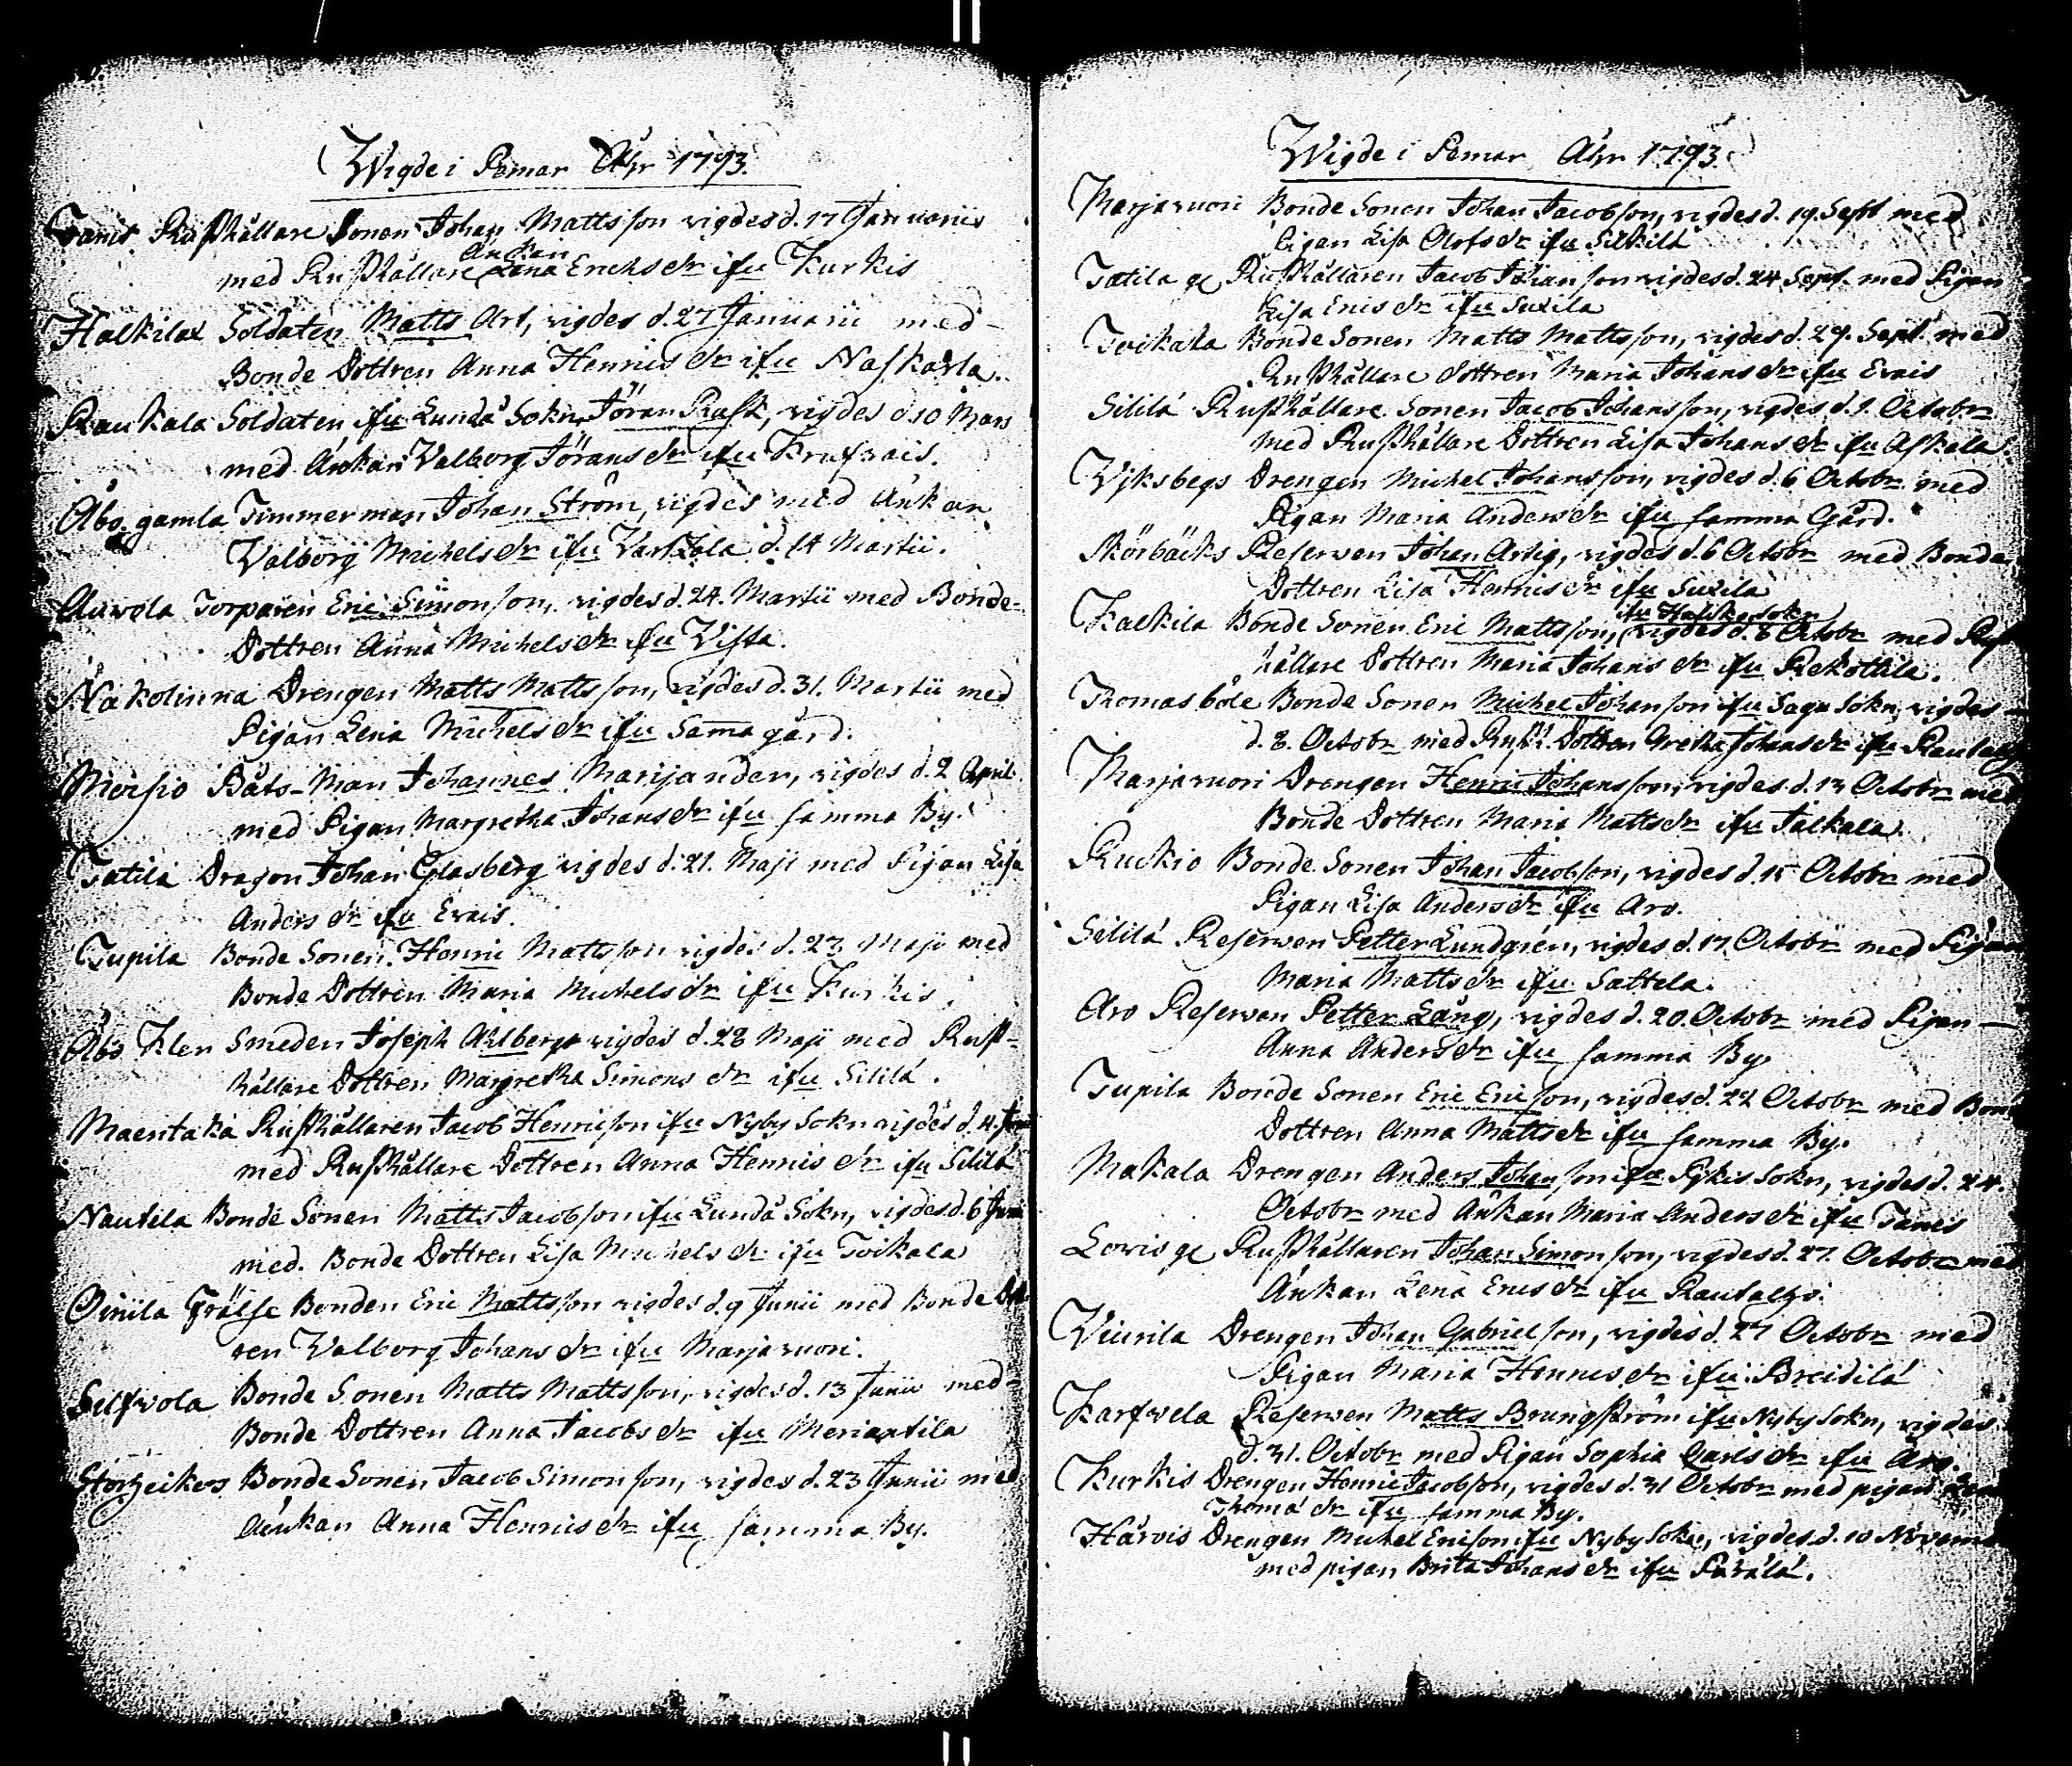 Wigde i Pemar Åhr 1793.
Tranis Rusthållare Sonen Johan Mattsson vigdes d. 17 Januarii
Änkan
med Rusthållare Lena Erichs dr ifrn Kurkis
Halkilax Soldaten Matts Art, vigdes d. 27 Januarii med
Bonde Dottren Anna Henrics dr ifrn Naskarla.
Raukala Soldaten ifrn Lundå Sokn Jöran Rask, vigdes d 10 Mars
med Änkan Valborg Jörans dr ifrn
Åbo gamla Timmerman Johan Ström, vigdes med Änkan
Valborg Michels dr ifrn d. 14 Martii.
Auvola Torparen Eric Simonsson, vigdes d. 24. Martii med Bonde-
Dottren Anna Michels dr ifrn Vista.
Nakolinna Drengen Matts Mattsson, vigdes d. 31. Martii med
Pigan Lena Michels dr ifrn Sama gård.
Meisio Båts-Man Johannes Marijander, vigdes d. 2 April.
med Pigan Margretha Johans dr ifrn samma By.
Tatila Dragon Johan Glasberg vigdes d. 21. Maji med Pigan Lisa
Anders dr ifrn Evais.
Tupila Bonde Sonen Henric Mattsson vigdes d. 23 Maji med
Bonde Dottren Maria Michels dr ifrn Kurkis.
Åbo Klen Smeden Joseph Ahlberg vigdes d. 28 Maji med Rust-
hållare Dottren Margretha Simons dr ifrn Sililä.
Maentaka Rusthållaren Jacob Henricson ifrn Nyby Sokn vigdes d. 4. Juni
med Rusthållare Dottren Anna Henrics dr ifrn Sililä
Nautela Bonde Sonen Matts Jacobsson ifrn Lundå Sokn, vigdes d. 6 Juni
med Bonde Dottren Lisa Michels dr ifrn Toikala
Oinila Frälse Bonden Eric Mattsson vigdes d. 9 Junii med Bonde Dott
ren Walborg Johans dr ifrn Marjavuori.
Bonde Sonen Matts Mattsson, vigdes d. 13 Junii med
Bonde Dottren Anna Jacobs dr ifrn Meriantila
Storheikes Bonde Sonen Jacob Simonsson, vigdes d. 23 Junii med
Änkan Anna Henrics dr ifrn samma By.
Wigde i Pemar Åhr 1793.
Marjavuori Bonde Sonen Johan Jacobsson, vigdes d. 19. Sept med
Pigan Lisa Olofs dr ifrn Silkilä
Tatila gl Rusthållaren Jacob Johansson vigdes d. 24 Sept. med Pigan
Lisa Erics dr ifrn Suxila
Toikala Bonde Sonen Matts Mattsson, vigdes d. 29. Sept. med
Rusthållare Dottren Maria Johans dr ifrn Evais
Sililä Rusthållare Sonen Jacob Johansson, vigdes d. 1. Octobr
med Rusthållare Dottren Lisa Johans dr ifrn Askala.
Wiksbegs Drengen Michel Johansson, vigdes d. 6 Octobr med
Pigan Maria Anders dr ifrn samma Gård.
Skörbäcks Reserven Johan Artig, vigdes d. 6 Octobr med Bonde
Dottren Lisa Henrics dr ifrn Suxila
ifrn Haliko sokn
Kalkila Bonde Sonen Eric Mattsson, vigdes d. 8 Octobr med Rust
hållare Dottren Maria Johans dr ifrn Rekottila.
Thomasböle Bonde Sonen Michel Johansson ifrn Sagu Sokn, vigdes
d. 8. Octobr med Rusth. Dottren Gretha Johans dr ifrn
Marjavuori Drengen Henric Johansson, vigdes d. 13 Octobr med
Bonde Dottren Maria Matts dr ifrn Talkala.
Ruckio Bonde Sonen Johan Jacobsson, vigdes d. 15 Octobr med
Pigan Lisa Anders dr ifrn Aro.
Sililä Reserven Petter Lundgrén, vigdes d. 17. Octobr med Pigan
Maria Matts dr ifrn Sattela.
Aro Reserven Petter Lång, vigdes d. 20. Octobr med Pigan
Anna Anders dr ifrn samma By.
Tupila Bonde Sonen Eric Ericsson, vigdes d. 22 Octobr med Bond
Dottren Anna Matts dr ifrn samma By.
Makala Drengen Anders Johansson ifrn Pykis Sokn, vigdes d. 24.
Octobr med Änkan Maria Anders dr ifrn Tanis
Lovis gl Rusthållaren Johan Simonsson, vigdes d. 27. Octobr med
Änkan Lena Erics dr ifrn
Viurila Drengen Johan Gabrielsson, vigdes d. 27 Octobr med
Pigan Maria Henrics dr ifrn Breidilä
Karfvela Reserven Matts Brungström ifrn Nyby Sokn, vigdes
d. 31. Octobr med Pigan Sophia Carls dr ifrn Aro.
Kurkis Drengen Henric Jacobsson, vigdes d. 31 Octobr med pigan
Thoma dr ifrn samma By.
Härvis Drengen Michel Ericson ifrn Nyby Sokn, vigdes d. 10 Novemb
med pigan Brita Johans dr ifrn